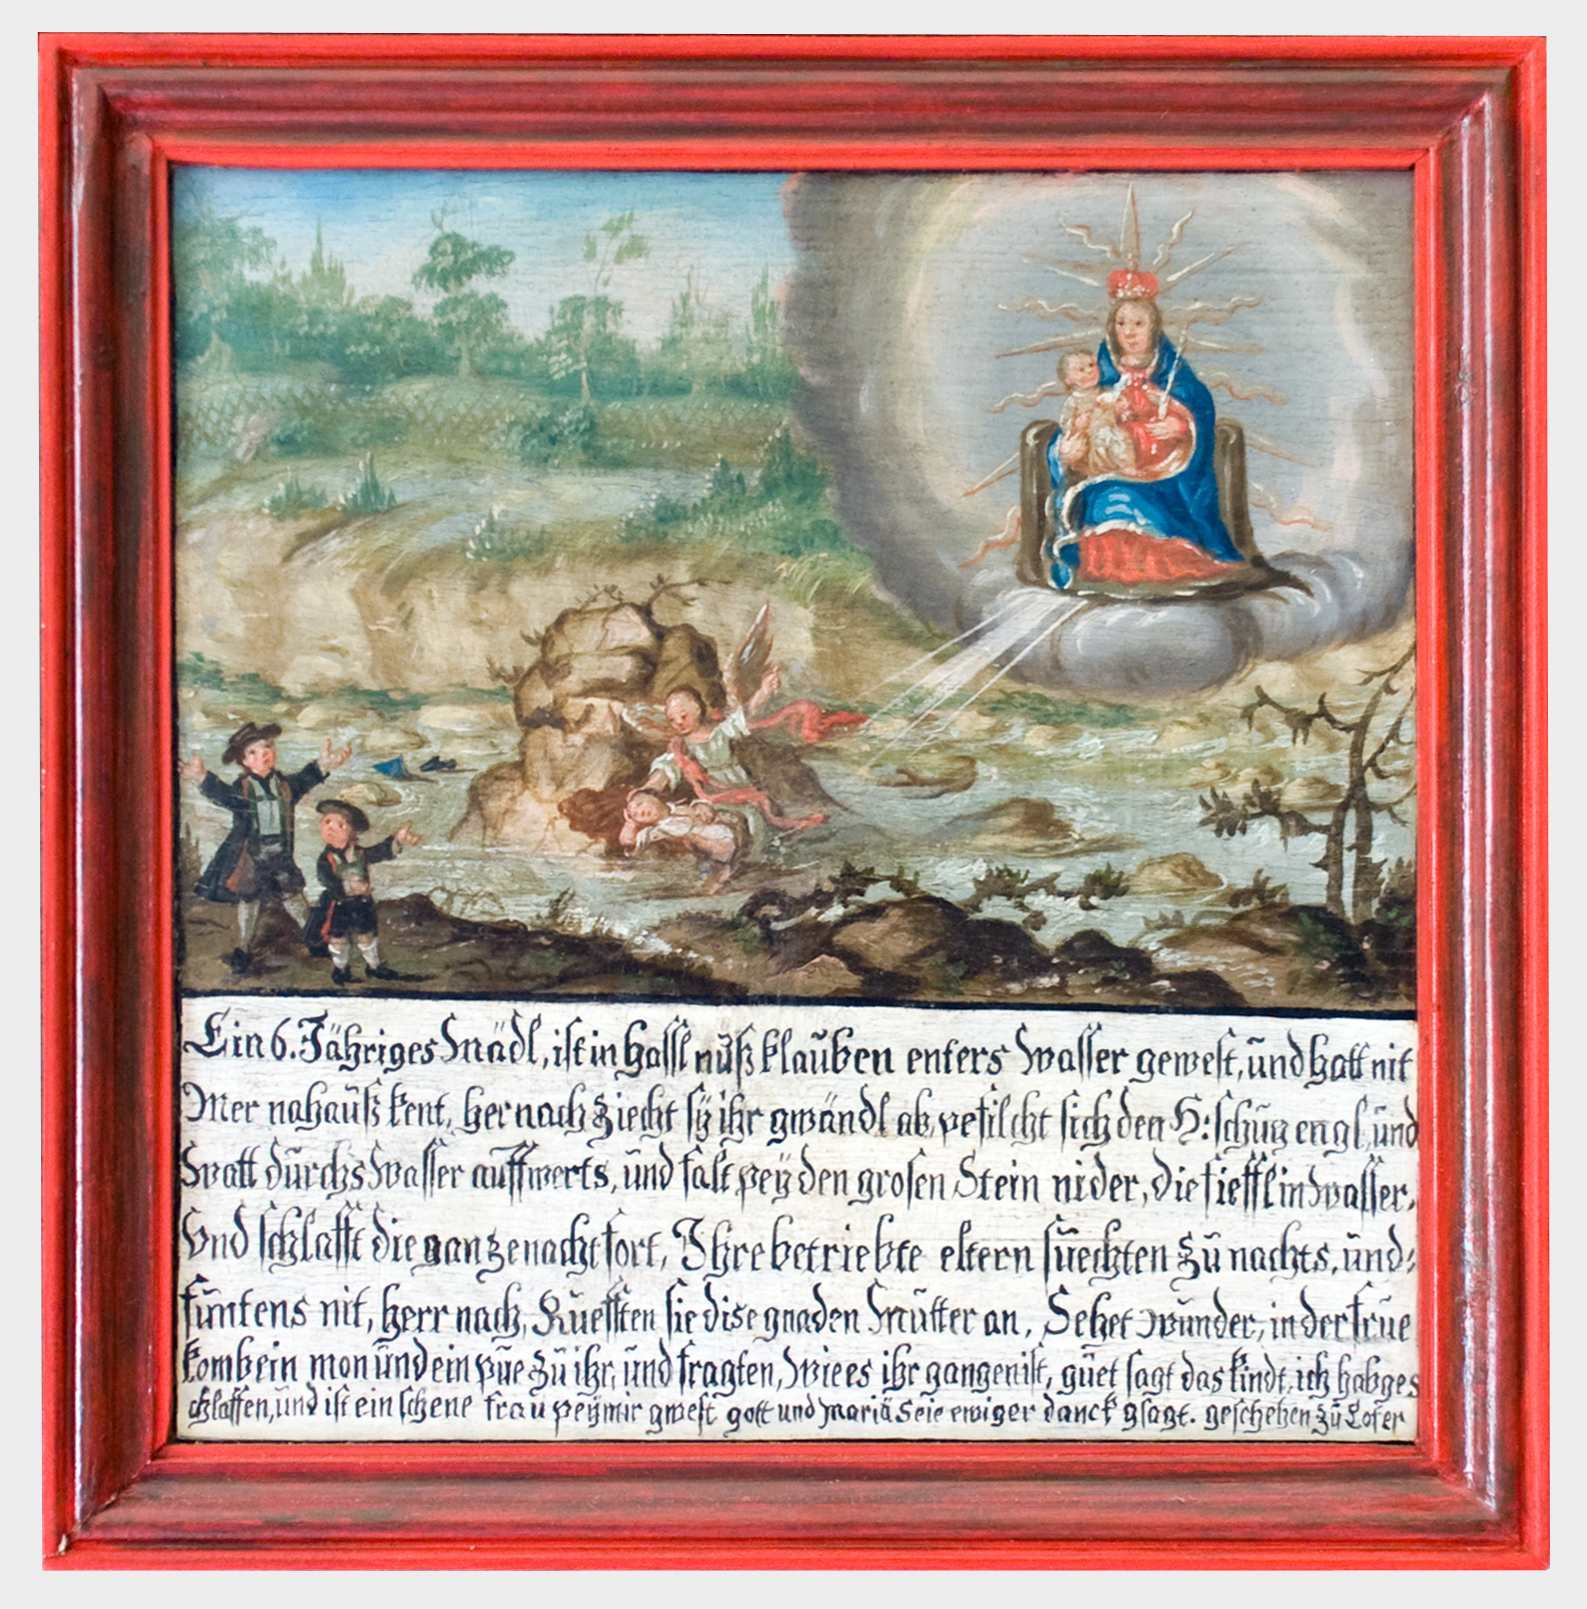 Ein 6. Jähriges Mädl, ist in hassl nuß klauben enters Wasser gewest, und hatt nit
Mer nahauß kent, hernach ziecht sÿ ihr gwändl ab, pefilcht sich den H: schuz engl, und
Watt durchs Wasser auffwerts, und falt peÿ den grosen Stein nider, die tieffl in wasser,
Und schlafft die ganze nacht fort, Ihre betriebte eltern suechten zu nachts, und:
funtens nit, herr nach, Ruefften sie dise gnaden Mutter an, Sehet wunder, in der frue
komb ein mon und ein pue zu ihr, und fragten, wie es ihr gangen ist, guet sagt das kindt, ich hab ges
chlaffen, und ist ein schene frau peÿ mir gwest gott und Mariä Seie ewiger danck gsagt. geschehen zu Lofer